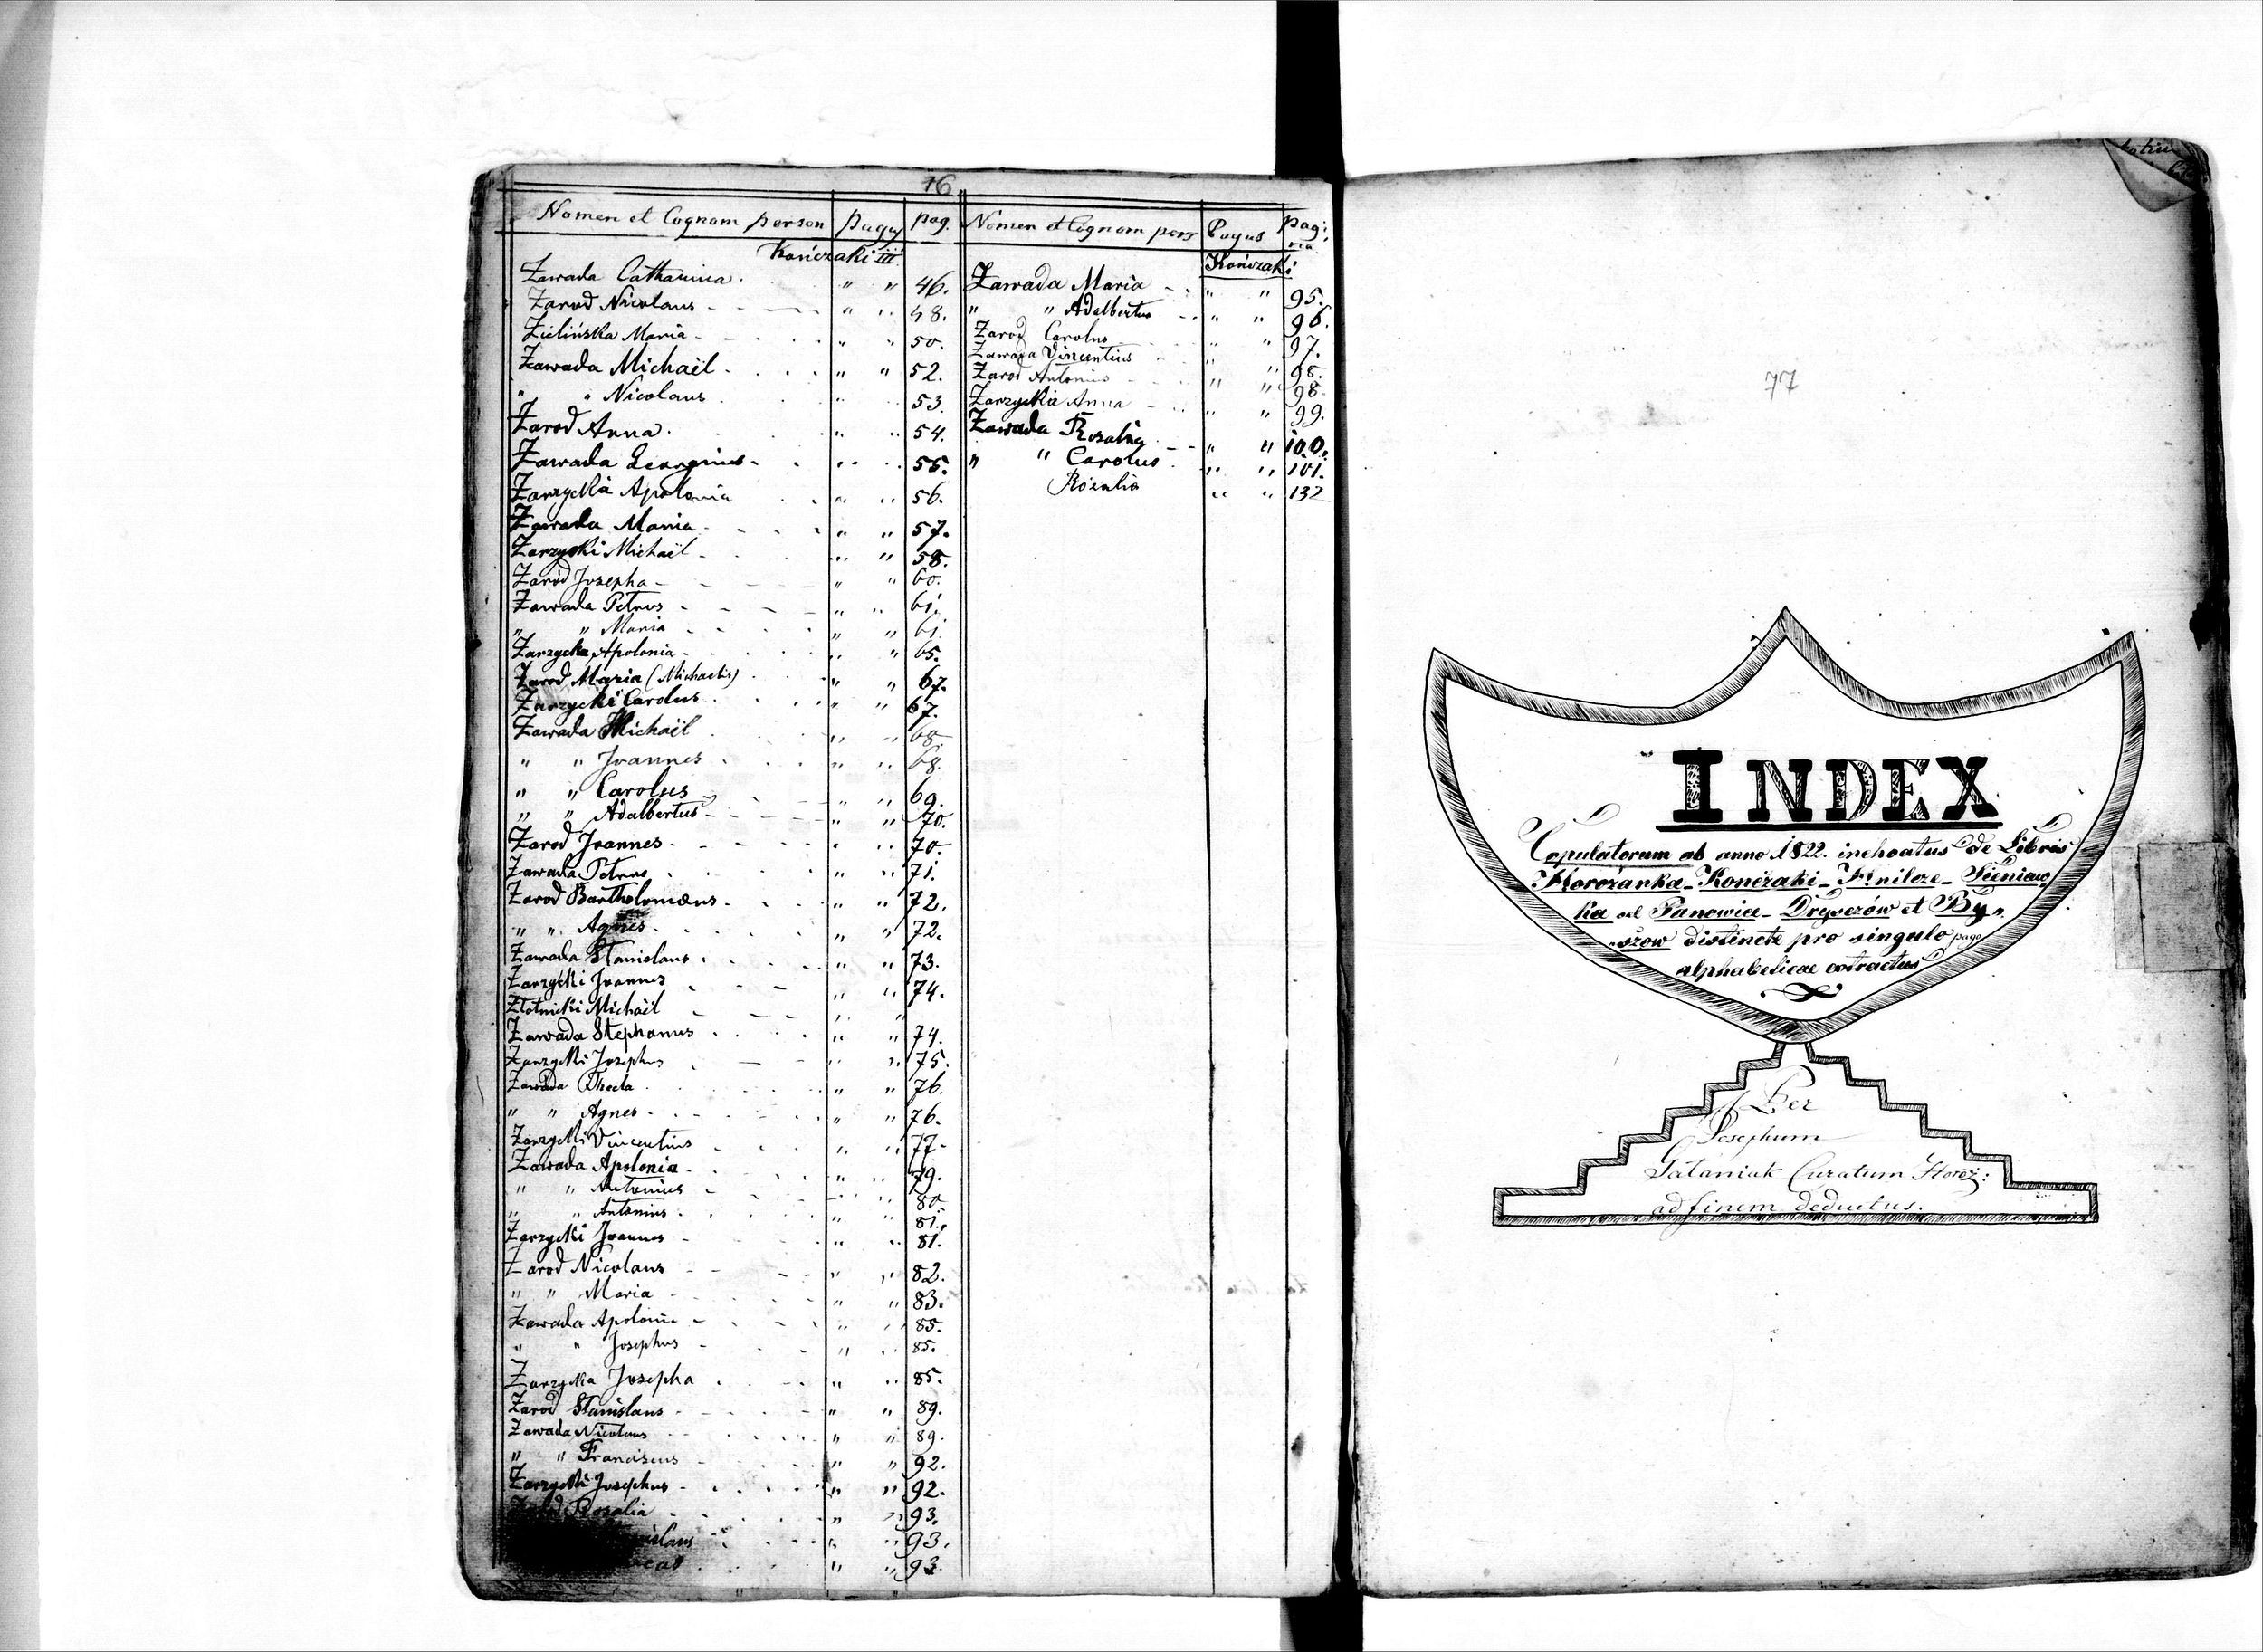 76
Nomen et Cognom person pagus pag.
Kończaki III.
Zawada Catharina " " 46.
Zarod Nicolaus " " 48.
Zielińska Maria " " 50.
Zawada Michaël " " 52.
" " Nicolaus " " 53.
Zarod Anna " " 54.
Zawada Georgius " " 55.
Zarzycka Apolonia " " 56.
Zawada Maria " " 57.
Zarzycki Michaël " " 58.
Zaród Josepha " " 60.
Zawada Petrus " " 61.
" " Maria " " 61
Zarzycka Apolonia " " 65.
Zarod Maria (Michaelis) " " 67.
Zarzycki Carolus " " 67.
Zawada Michaël " " 68
" " Joannes " " 68.
" " Carolus " " 69.
" " Adalbertus " " 70.
Zarod Joannes " " 70.
Zawada Petrus " " 71.
Zarod Bartholomæus " " 72.
" " Agnes " " 72.
Zawada Stanislaus " " 73.
Zarzycki Joannes " " 74.
Złotnicki Michaël " "
Zawada Stephanus " " 74.
Zarzycki Josephus " " 75.
Zawada Thecla " " 76.
" " Agnes " " 76.
Zarzycki Vincentius " " 77
Zawada Apolonia " " 79.
" " Antonius " " 80
" " Antonius " " 81.
Zarzycki Joannes " " 81.
Zarod Nicolaus " " 82.
" " Maria " " 83.
Zawada Apolonia " " 85.
" " Josephus " " 85.
Zarzycka Josepha " " 85.
Zarod Stanislaus " " 89.
Zawada Nicolaus " " 89.
" " Franciscus " " 92.
Zarzycki Josephus " " 92.
Rosalia " " 93.
" " 93.
" " 93
Nomen et Cognom pers Pagus pagi:
na
Kończaki
Zawada Maria " " 95.
" " Adalbertus " " 96.
Zarod Carolus " " 97.
Zawada Vincentius " " 98.
Zarod Antonius " " 98.
Zarzycka Anna " " 99.
Zawada Rosalia " " 100.
" " Carolus " " 101.
Rozalia " " 132
77
INDEX
Copulatorum ab anno 1822. inchoatus de Libris
Horożanka - Kończaki - Hnilcze - Sieniaw
ka ad Panowice - Dryszczów et By„
„szow distincte pro singulo pago
alphabeticae extractus
Per
Josephum
Gataniak Curatum Horoż:
ad finem deductus.